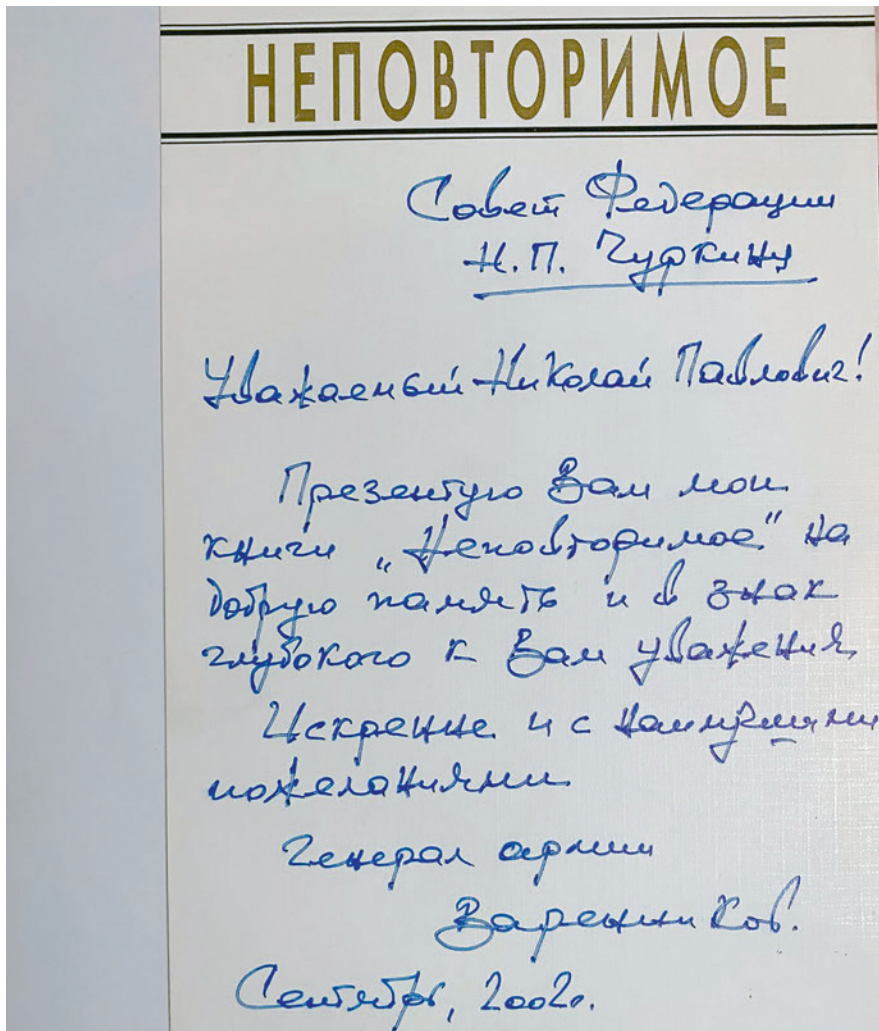 НЕПОВТОРИМОЕ
Совет Федерации
Н.П. Чуркину
Уважаемый Николай Павлович!
Презентую Вам мои
книги „Неповторимое" на
добрую память и в знак
глубокого к Вам уважения.
Искренне и с наилучшими
пожеланиями
Генерал армии
Варенников.
Сентябрь, 2002г.